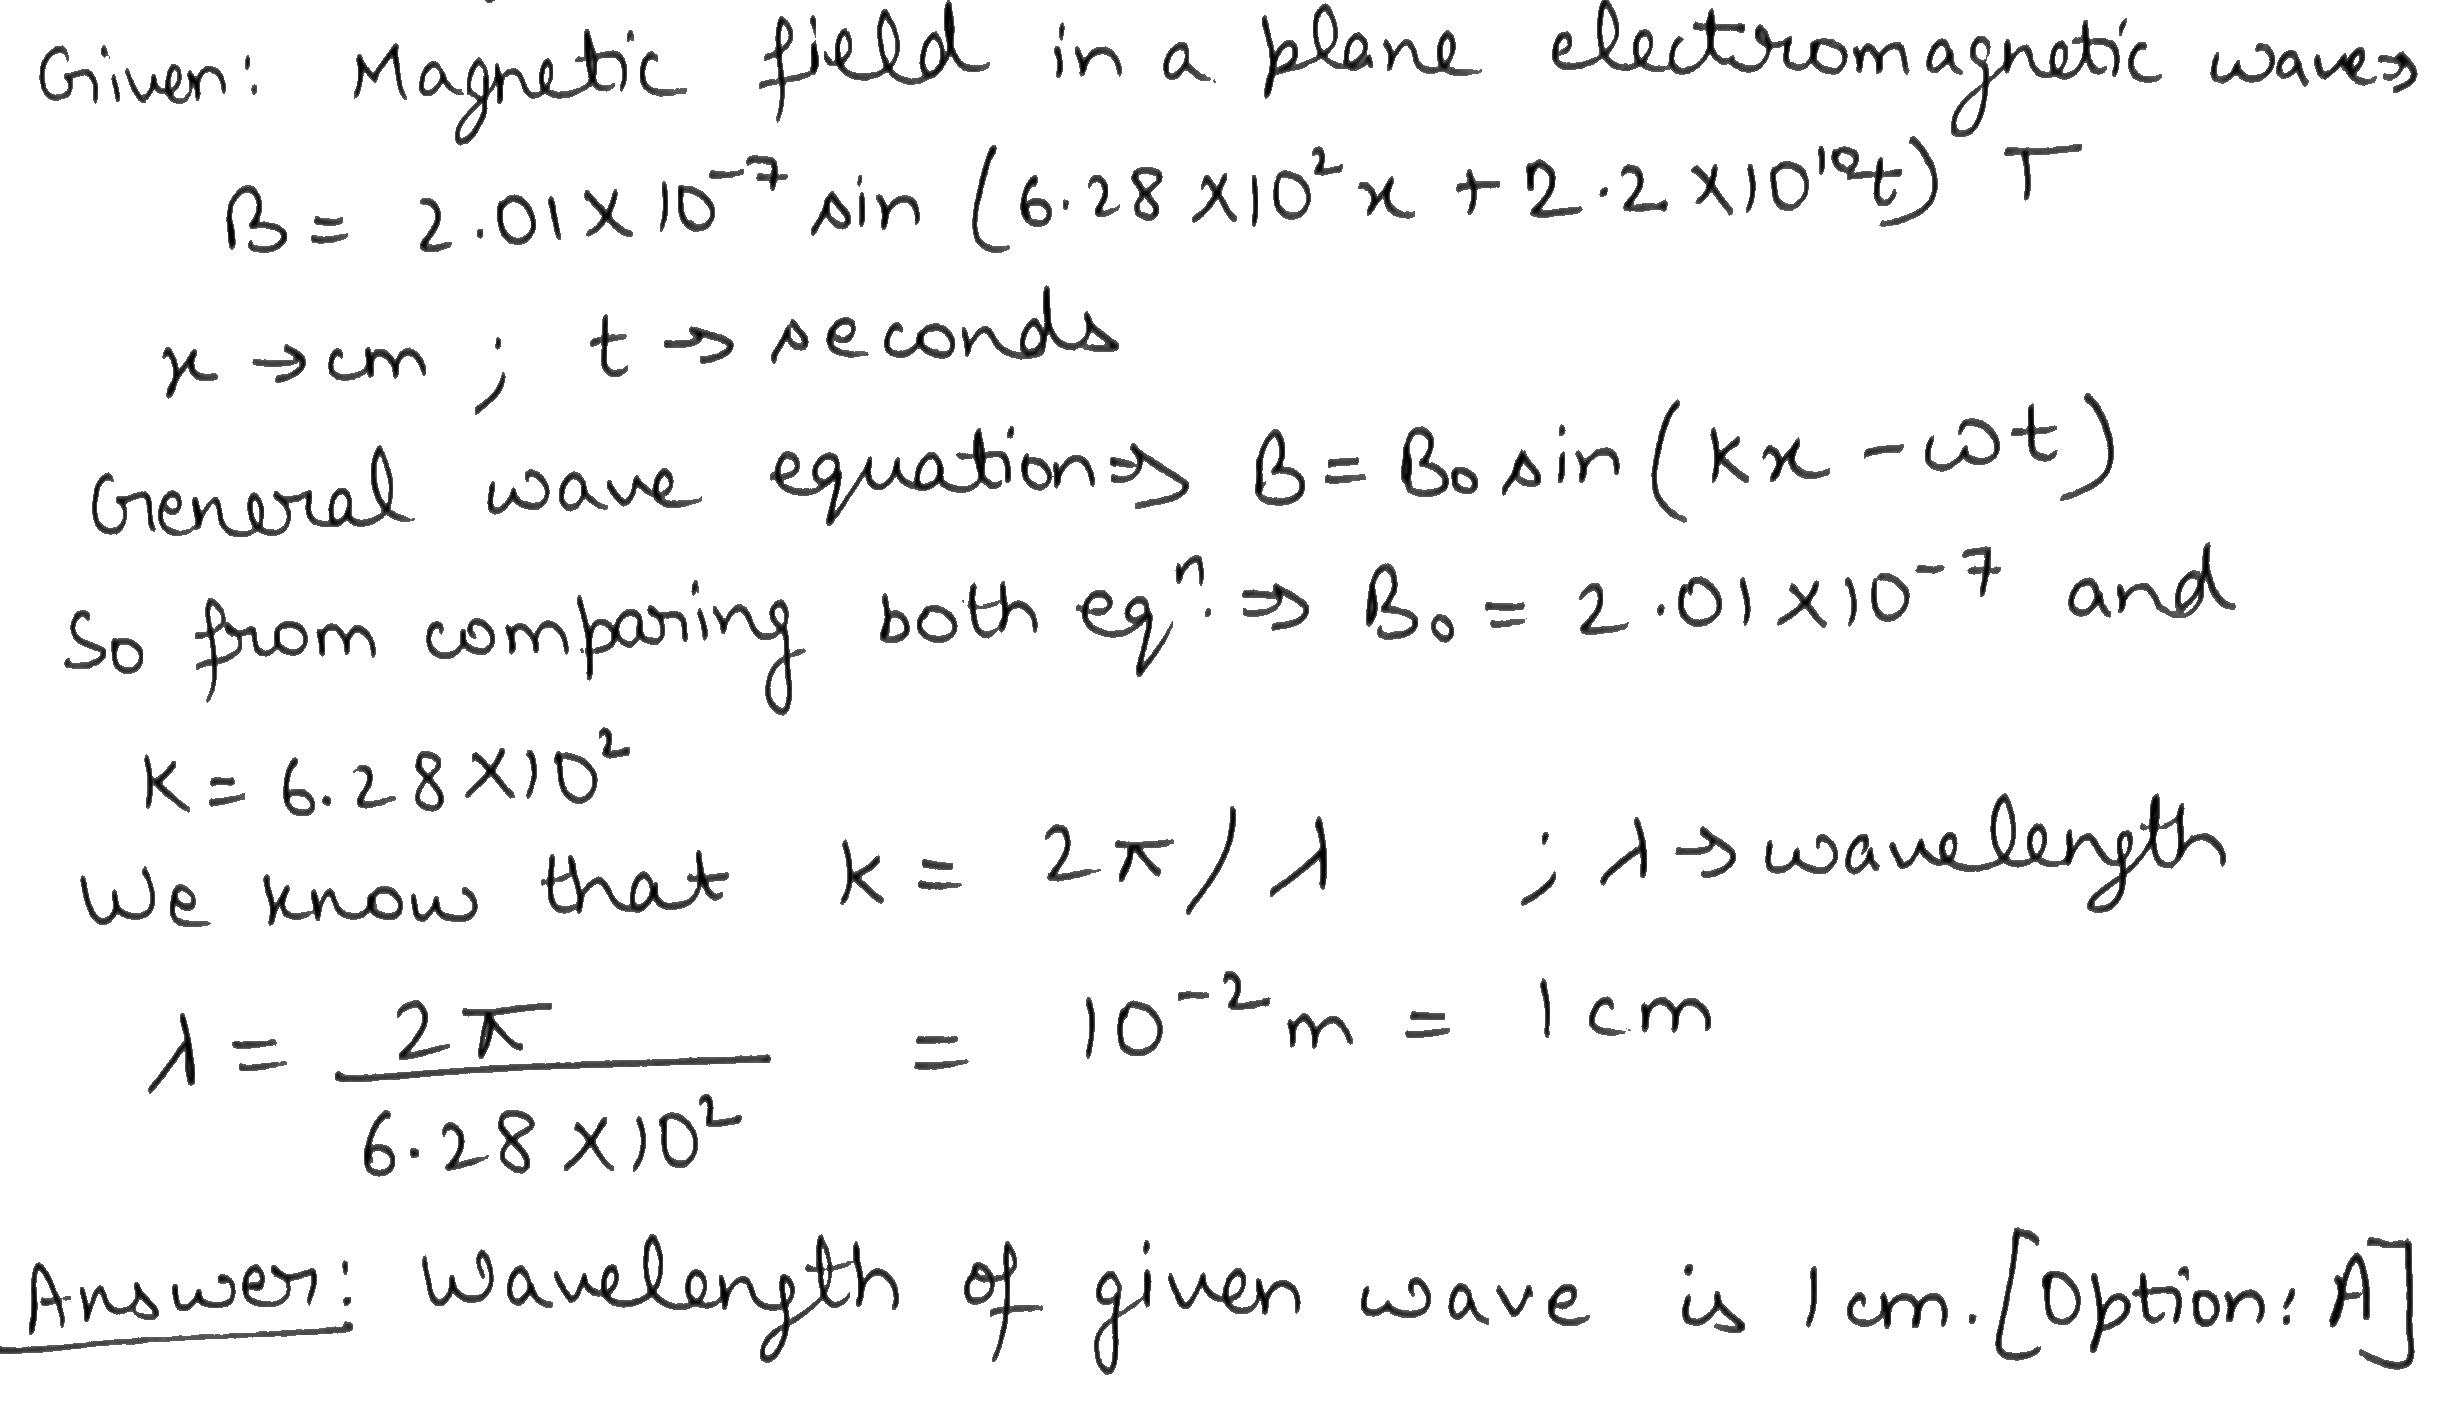 Given: Magnetic field in a plane electromagnetic wave→
B = 2.01 × 10⁻⁷ sin (6.28 × 10² x + 2.2 × 10¹⁰t) T
x → cm ; t → seconds
General wave equation ⇒ B = B₀ sin (Kx - ωt)
So from comparing both eqⁿ. ⇒ B₀ = 2.01 × 10⁻⁷ and
K = 6.28 × 10²
We know that k = 2π/λ ; λ → wavelength
λ = 2π / 6.28 × 10² = 10⁻² m = 1 cm
Answer: Wavelength of given wave is 1 cm. [Option: A]